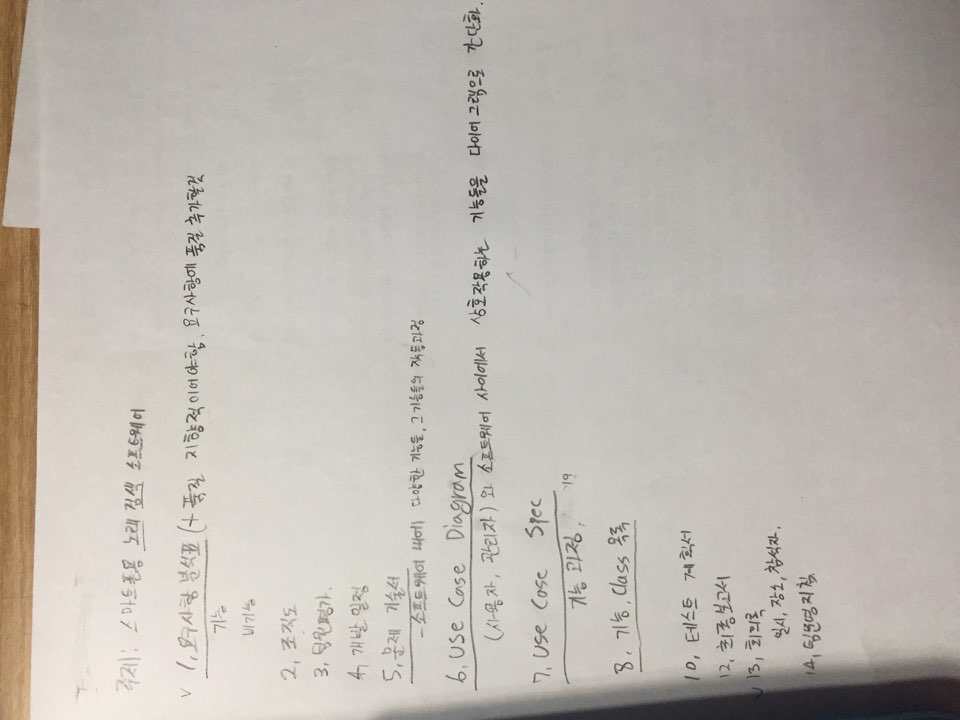 주제: 스마트폰용 노래 검색 소프트웨어
v 1. 요구사항 분석표 (+ 품질 지향적이어야함. 요구사항에 품질 추가할것
기능
비기능
2. 조직도
3. 팀원평가.
4. 개발 일정
5. 문제 기술서
- 소프트웨어 내에 다양한 기능들, 그 기능들의 작동과정
6. Use Case Diagram
(사용자, 관리자)와 소프트웨어 사이에서 상호작용하는 기능들을 다이어그램으로 간단화.
7. Use Case Spec
기능 과정. 19
8. 기능, Class 목록
10. 테스트 계획서
12. 최종보고서
v 13. 회의록
일시, 장소, 참석자.
14. 팀운영지침